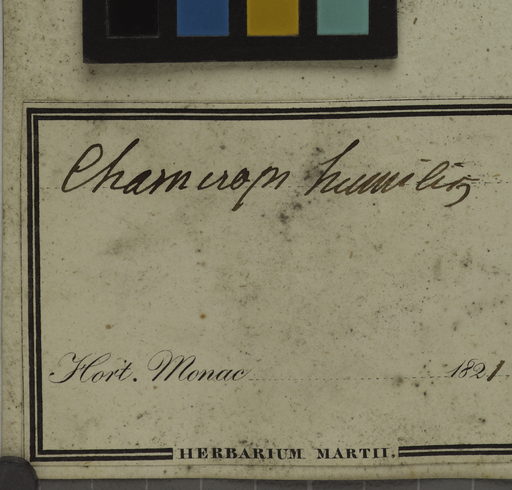 Chamerops humilis
Hort. Monac 1821
HERBARIUM MARTII.